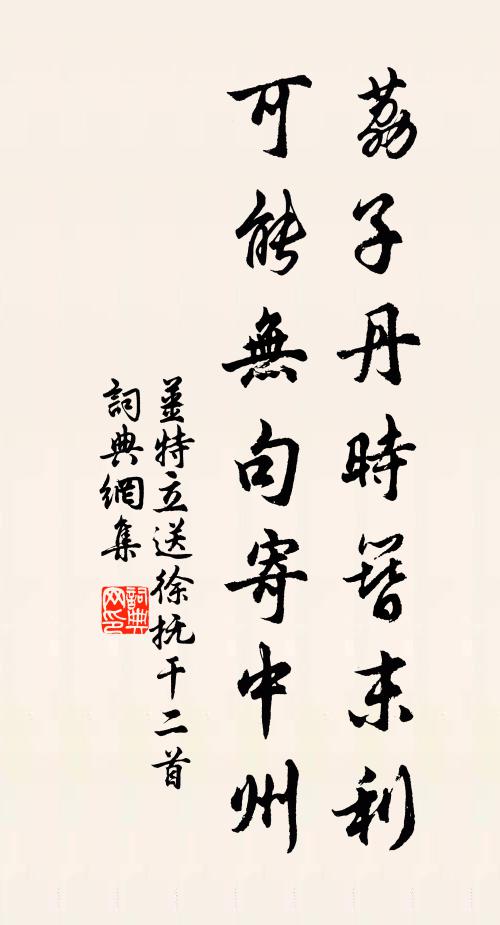 荔子丹時簪末利
可能無句寄中州
姜特立送徐抚干二首
詞典網集
詞典网印